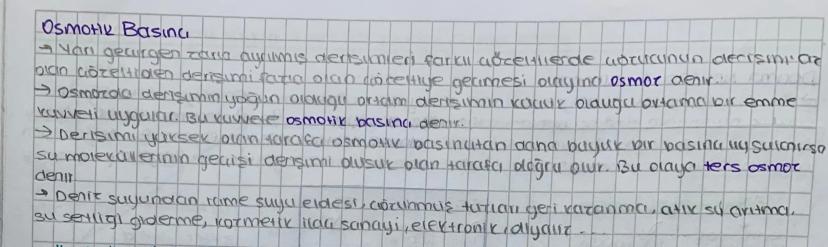 Osmotik Basıncı
→ Yarı geçirgen zarla ayrılmış derişimleri farklı çözeltilerde çözücünün derişimi az
olan çözeltiden derişimi fazla olan çözeltiye geçmesi olayına osmoz denir.
→ Osmozda derişimin yoğun olduğu ortam derişimin küçük olduğu ortama bir emme
kuvveti uygular. Bu kuvvete osmotik basıncı denir.
→ Derişimi yüksek olan tarafa osmotik basınçtan daha büyük bir basınç uygulanırsa
su moleküllerinin geçişi derişimi düşük olan tarafa doğru olur. Bu olaya ters osmoz
denir
→ Deniz suyundan içme suyu eldesi, çözünmüş tuzları geri kazanma, atık su arıtma,
su sertliği giderme, kozmetik ilaç sanayi, elektronik, diyaliz.